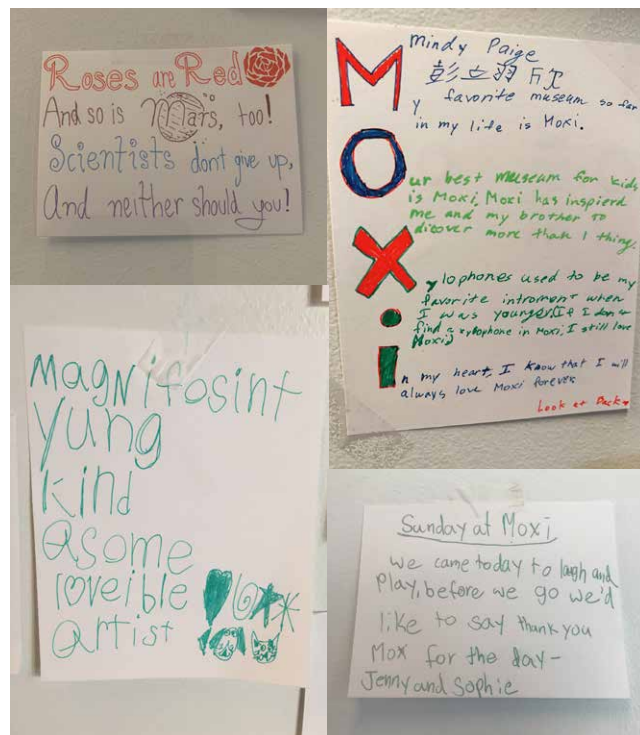 Roses are Red
And so is Mars, too!
Scientists don't give up,
And neither should you!
Mindy Paige
彭立羽
My favorite museum so far
in my life is Moxi.
Our best museum for kids
is Moxi, Moxi has inspierd
me and my brother to
dicover more than 1 thing.
Xylophones used to be my
favorite introment when
I was younger. If I don't
find a xylophone in Moxi, I still love
Moxi)
In my heart, I know that I will
always love Moxi forever
Look at Back
magnifosint
yung
kind
asome
loveible
artist
Sunday at Moxi
we came today to laugh and
play, before we go we'd
like to say thank you
Mox for the day-
Jenny and Sophie